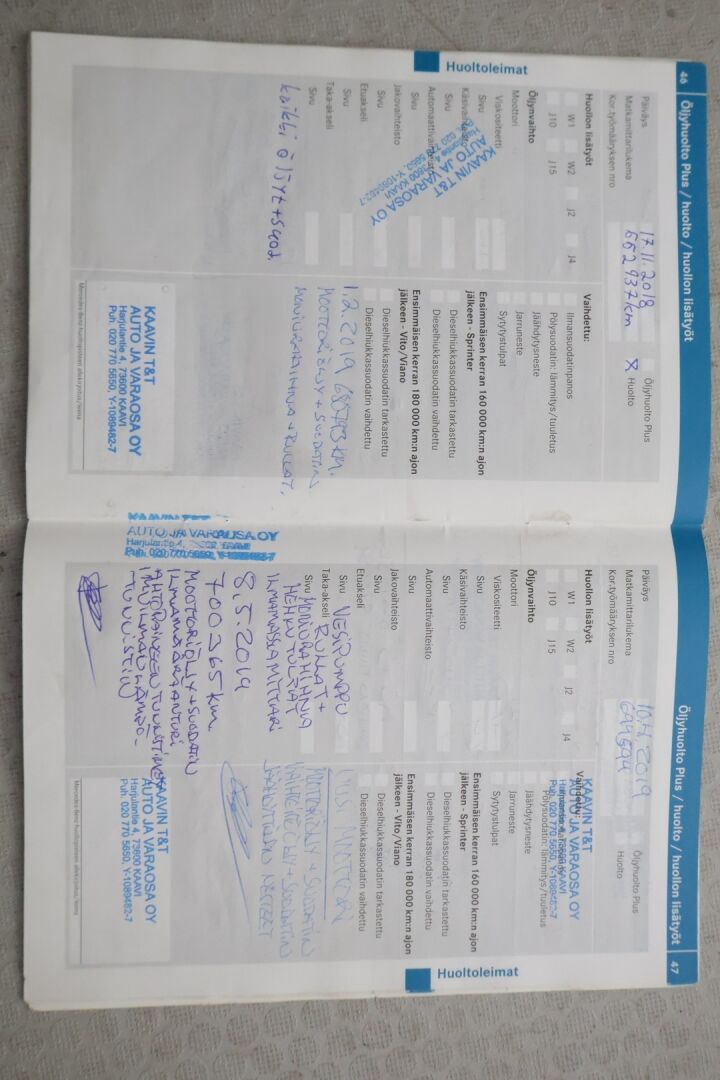 46
Öljyhuolto Plus / huolto / huollon lisätyöt
Huoltoleimat
Päiväys
17.11.2018
Öljyhuolto Plus
Matkamittarilukema
662937km
X Huolto
Kor.työmääräyksen nro
Huollon lisätyöt
W1
W2
J2
J4
J10
J15
Öljynvaihto
Moottori
Viskositeetti
Sivu
Käsivaihteisto
Sivu
Automaattivaihteisto
Sivu
Jakovaihteisto
Sivu
Etuakseli
Sivu
Taka-akseli
Sivu
kaikki öljyt + suod.
KAAVIN T&T
AUTO JA VARAOSA OY
Vaihdettu:
Ilmansuodatinpanos
Pölysuodatin: lämmitys/tuuletus
Jäähdytysneste
Jarruneste
Sytytystulpat
Ensimmäisen kerran 160 000 km:n ajon
jälkeen - Sprinter
Dieselhiukkassuodatin tarkastettu
Dieselhiukkassuodatin vaihdettu
Ensimmäisen kerran 180 000 km:n ajon
jälkeen - Vito/Viano
Dieselhiukkassuodatin tarkastettu
Dieselhiukkassuodatin vaihdettu
1.2.2019
MOOTTORIÖLJY + SUODATIN
MONIURAHIHNA + RULLAT.
KAAVIN T&T
AUTO JA VARAOSA OY
Harjulantie 4, 73600 KAAVI
Puh. 020 770 5650, Y-1089482-7
Öljyhuolto Plus / huolto / huollon lisätyöt
47
Huoltoleimat
Päiväys
Öljyhuolto Plus
Matkamittarilukema
Huolto
Kor.työmääräyksen nro
Huollon lisätyöt
W1
W2
J2
J4
J10
J15
Öljynvaihto
Moottori
Viskositeetti
Sivu
Käsivaihteisto
Sivu
Automaattivaihteisto
Sivu
Jakovaihteisto
Sivu
Etuakseli
Sivu
VESIPUMPPU
Taka-akseli
RULLAT +
Sivu
MONIURAHIHNA
HEHKUTULPAT
ILMAMASSAMITTARI
8.5.2019
700365 km
MOOTTORIÖLJY + SUODATIN
ILMAMÄÄRÄANTURI
KAAVIN T&T
AUTO JA VARAOSA OY
Harjulantie 4, 73600 KAAVI
Puh. 020 770 5650, Y-1089482-7
Vaihdettu:
KAAVIN T&T
AUTO JA VARAOSA OY
Harjulantie 4, 73600 KAAVI
Puh. 020 770 5650, Y-1089482-7
Pölysuodatin: lämmitys/tuuletus
Jäähdytysneste
Jarruneste
Sytytystulpat
Ensimmäisen kerran 160 000 km:n ajon
jälkeen - Sprinter
Dieselhiukkassuodatin tarkastettu
Dieselhiukkassuodatin vaihdettu
Ensimmäisen kerran 180 000 km:n ajon
jälkeen - Vito/Viano
Dieselhiukkassuodatin tarkastettu
Dieselhiukkassuodatin vaihdettu
MOOTTORIÖLJY + SUODATIN
KAAVIN T&T
AUTO JA VARAOSA OY
Harjulantie 4, 73600 KAAVI
Puh. 020 770 5650, Y-1089482-7